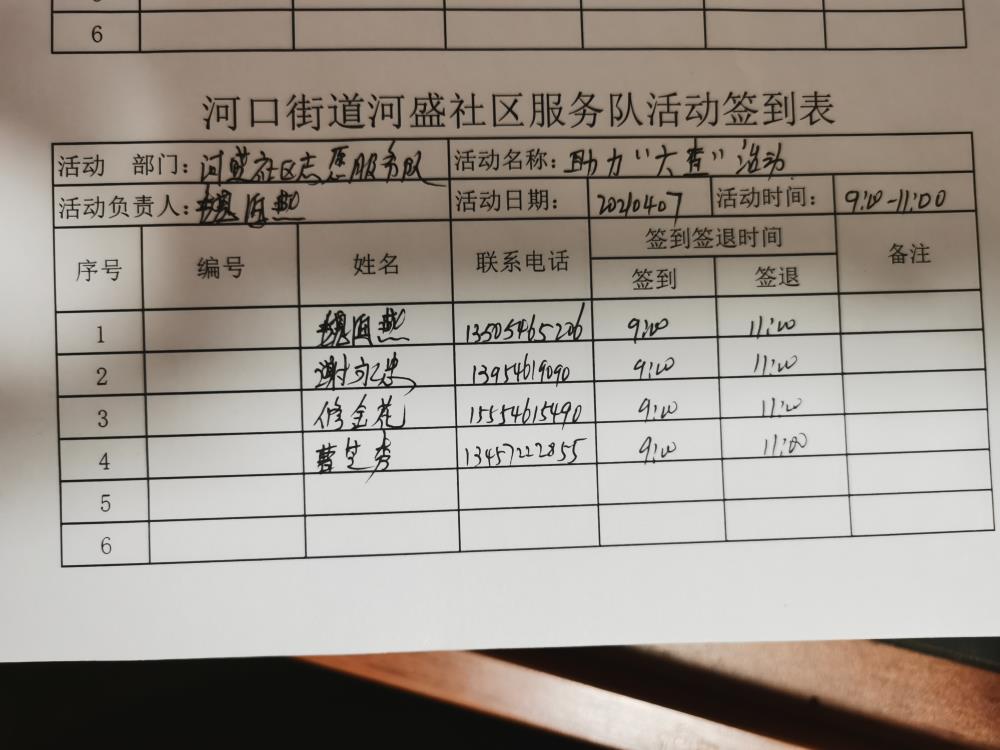 6
河口街道河盛社区服务队活动签到表
活动 部门：河盛社区志愿服务队 活动名称：助力“大查”活动
活动负责人： 活动日期：20210407 活动时间：9:00-11:00
序号 编号 姓名 联系电话 签到签退时间 备注
签到 签退
1 13505465206 9:00 11:00
2 13954619090 9:00 11:00
3 修金花 15554615490 9:00 11:00
4 曹笑秀 13457222855 9:00 11:00
5
6